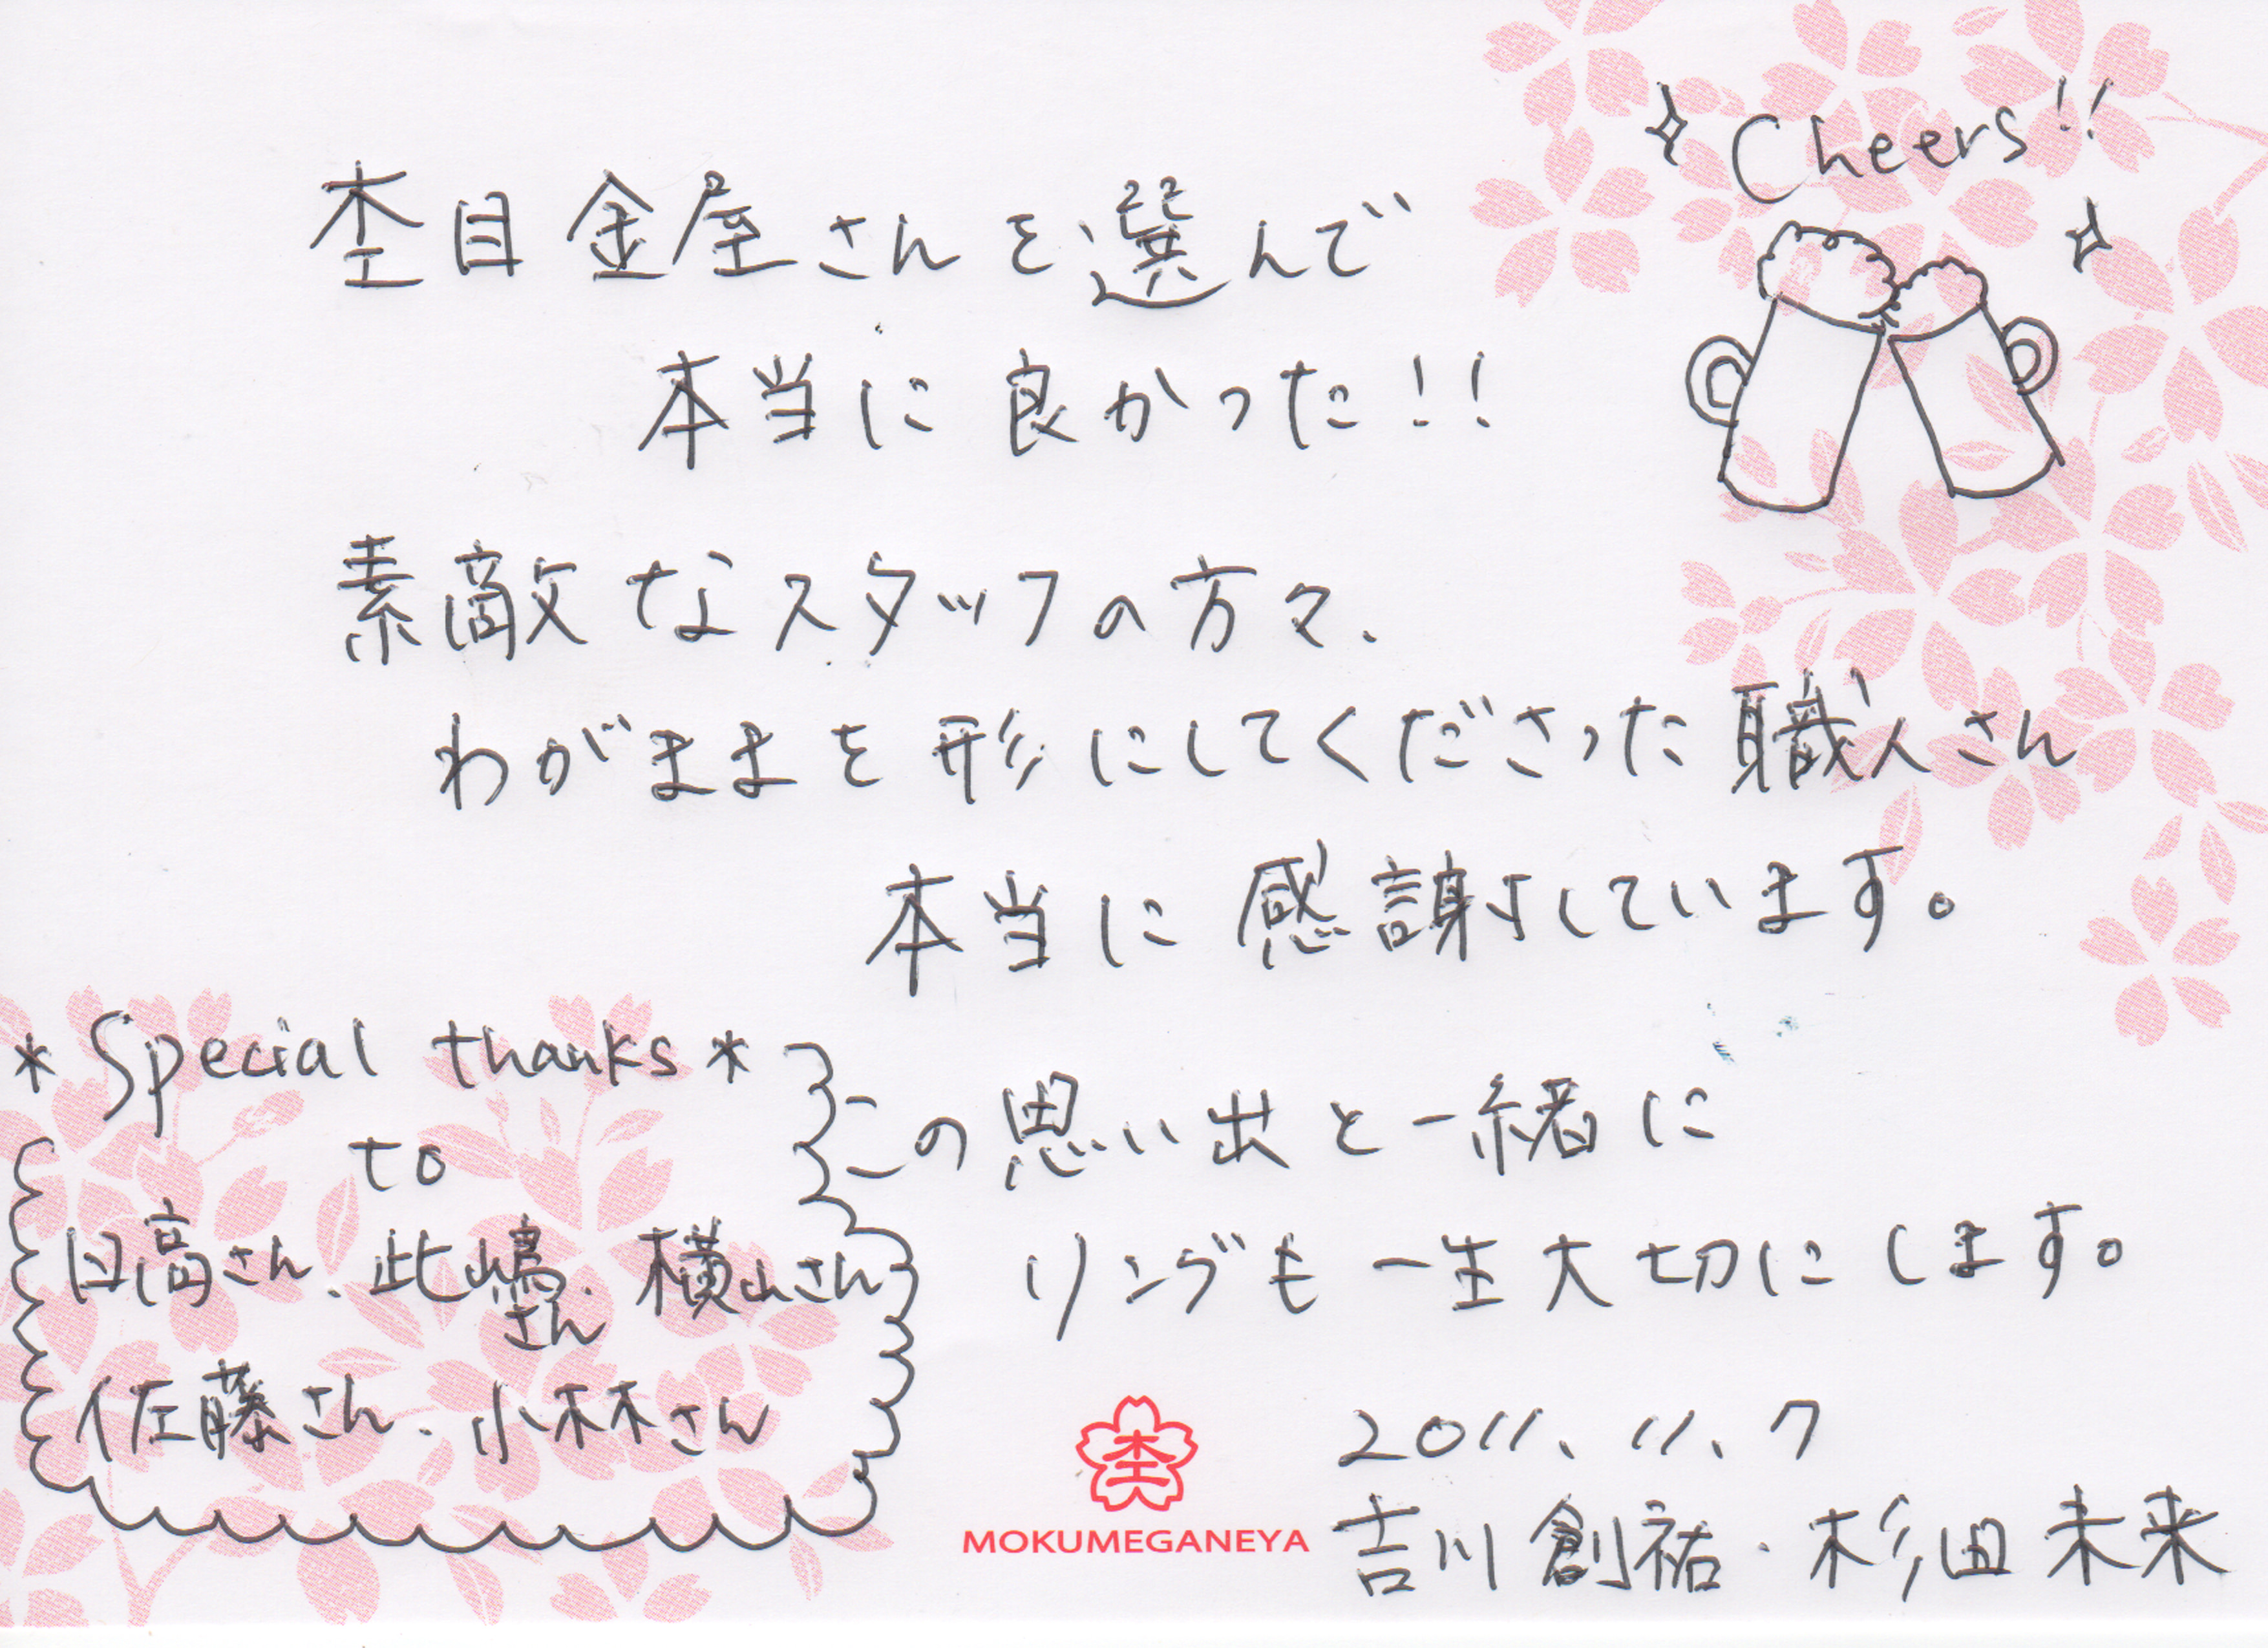 Cheers!!
杢目金屋さんを選んで
本当に良かった!!
素敵なスタッフの方々、
わがままを形にしてくださった職人さん
本当に感謝しています。
*Special thanks*
to
日高さん、此嶋さん、横山さん
佐藤さん、小林さん
この思い出と一緒に
リングも一生大切にします。
2011.11.7
吉川創祐・杉田未来
杢
MOKUMEGANEYA